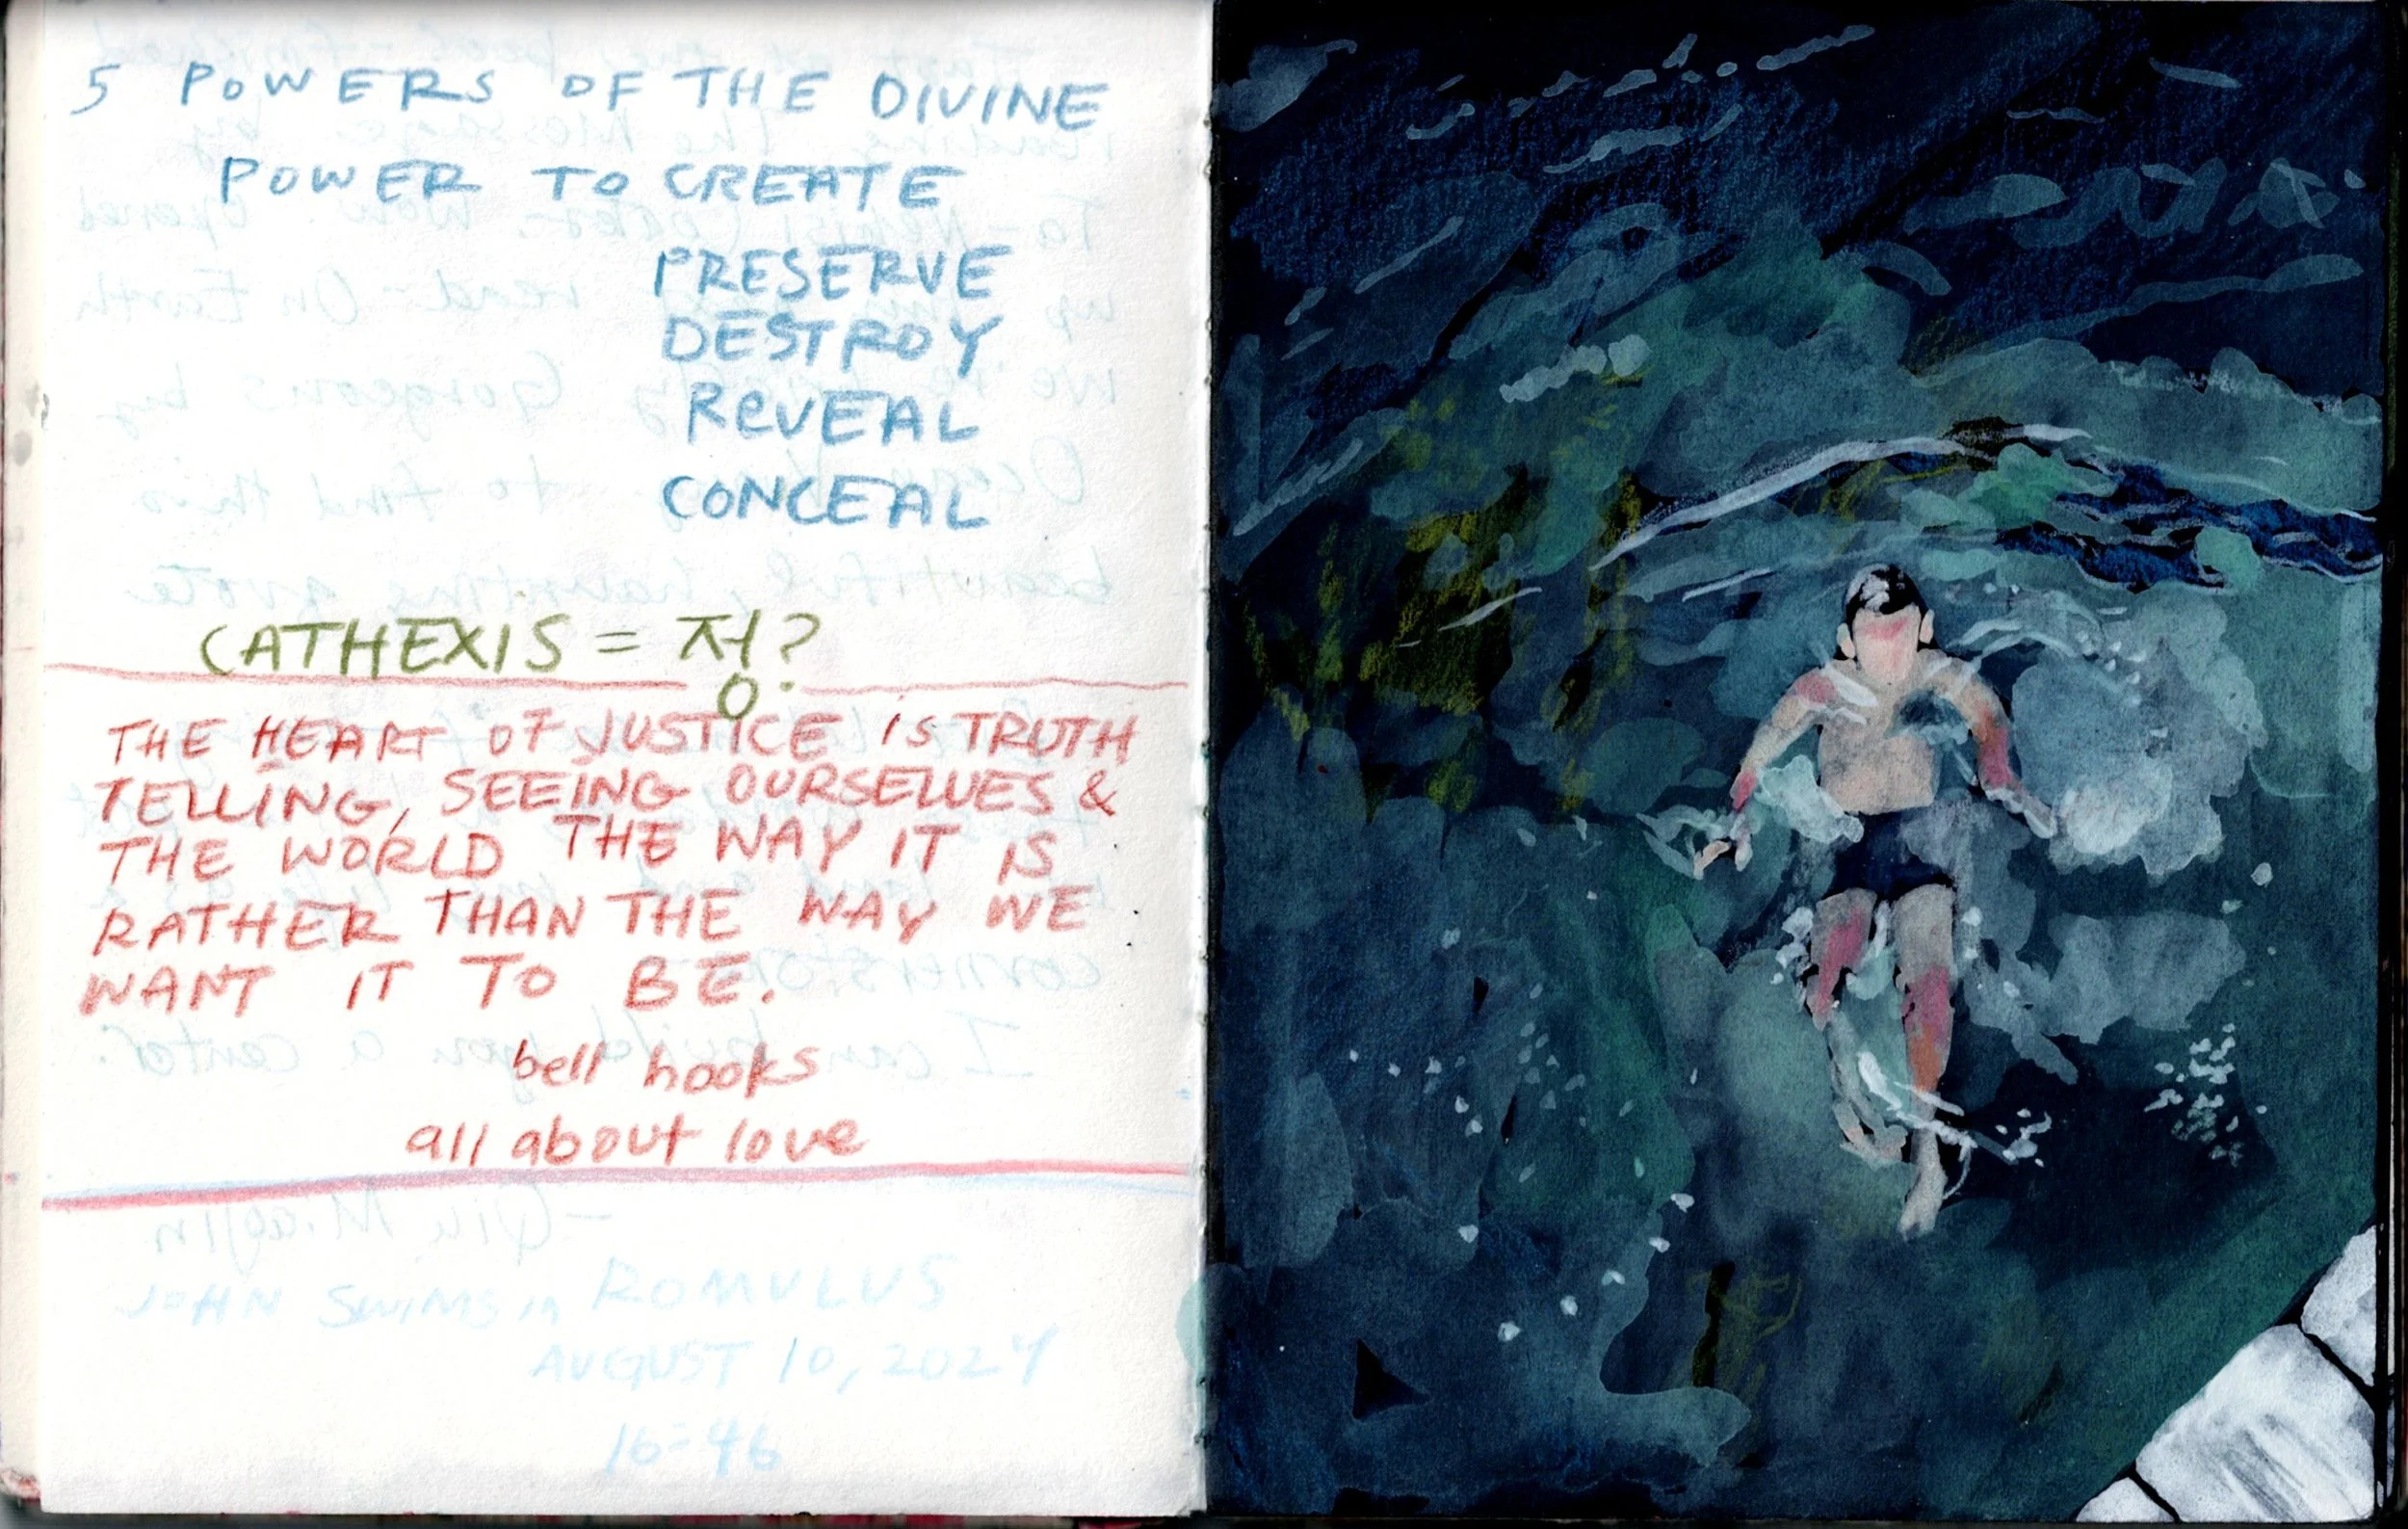 5 POWERS OF THE DIVINE
POWER TO CREATE
PRESERVE
DESTROY
REVEAL
CONCEAL
CATHEXIS = 정?
THE HEART OF JUSTICE is TRUTH
TELLING, SEEING OURSELVES &
THE WORLD THE WAY IT IS
RATHER THAN THE WAY WE
WANT IT TO BE.
bell hooks
all about love
JOHN SWIMS in ROMULUS
AUGUST 10, 2024
16:46